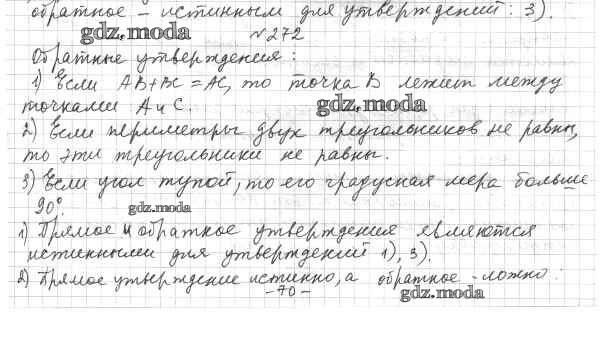 обратное – истинным для утверждений: 3).
gdz.moda №272
Обратные утверждения:
1) Если AB+BC=AC, то точка B лежит между
точками A и C. gdz.moda
2) Если периметры двух треугольников не равны,
то эти треугольники не равны.
3) Если угол тупой, то его градусная мера больше
90°. gdz.moda
1) Прямое и обратное утверждения являются
истинными для утверждений 1), 3).
2) Прямое утверждение истинно, а обратное – ложно:
-70- gdz.moda